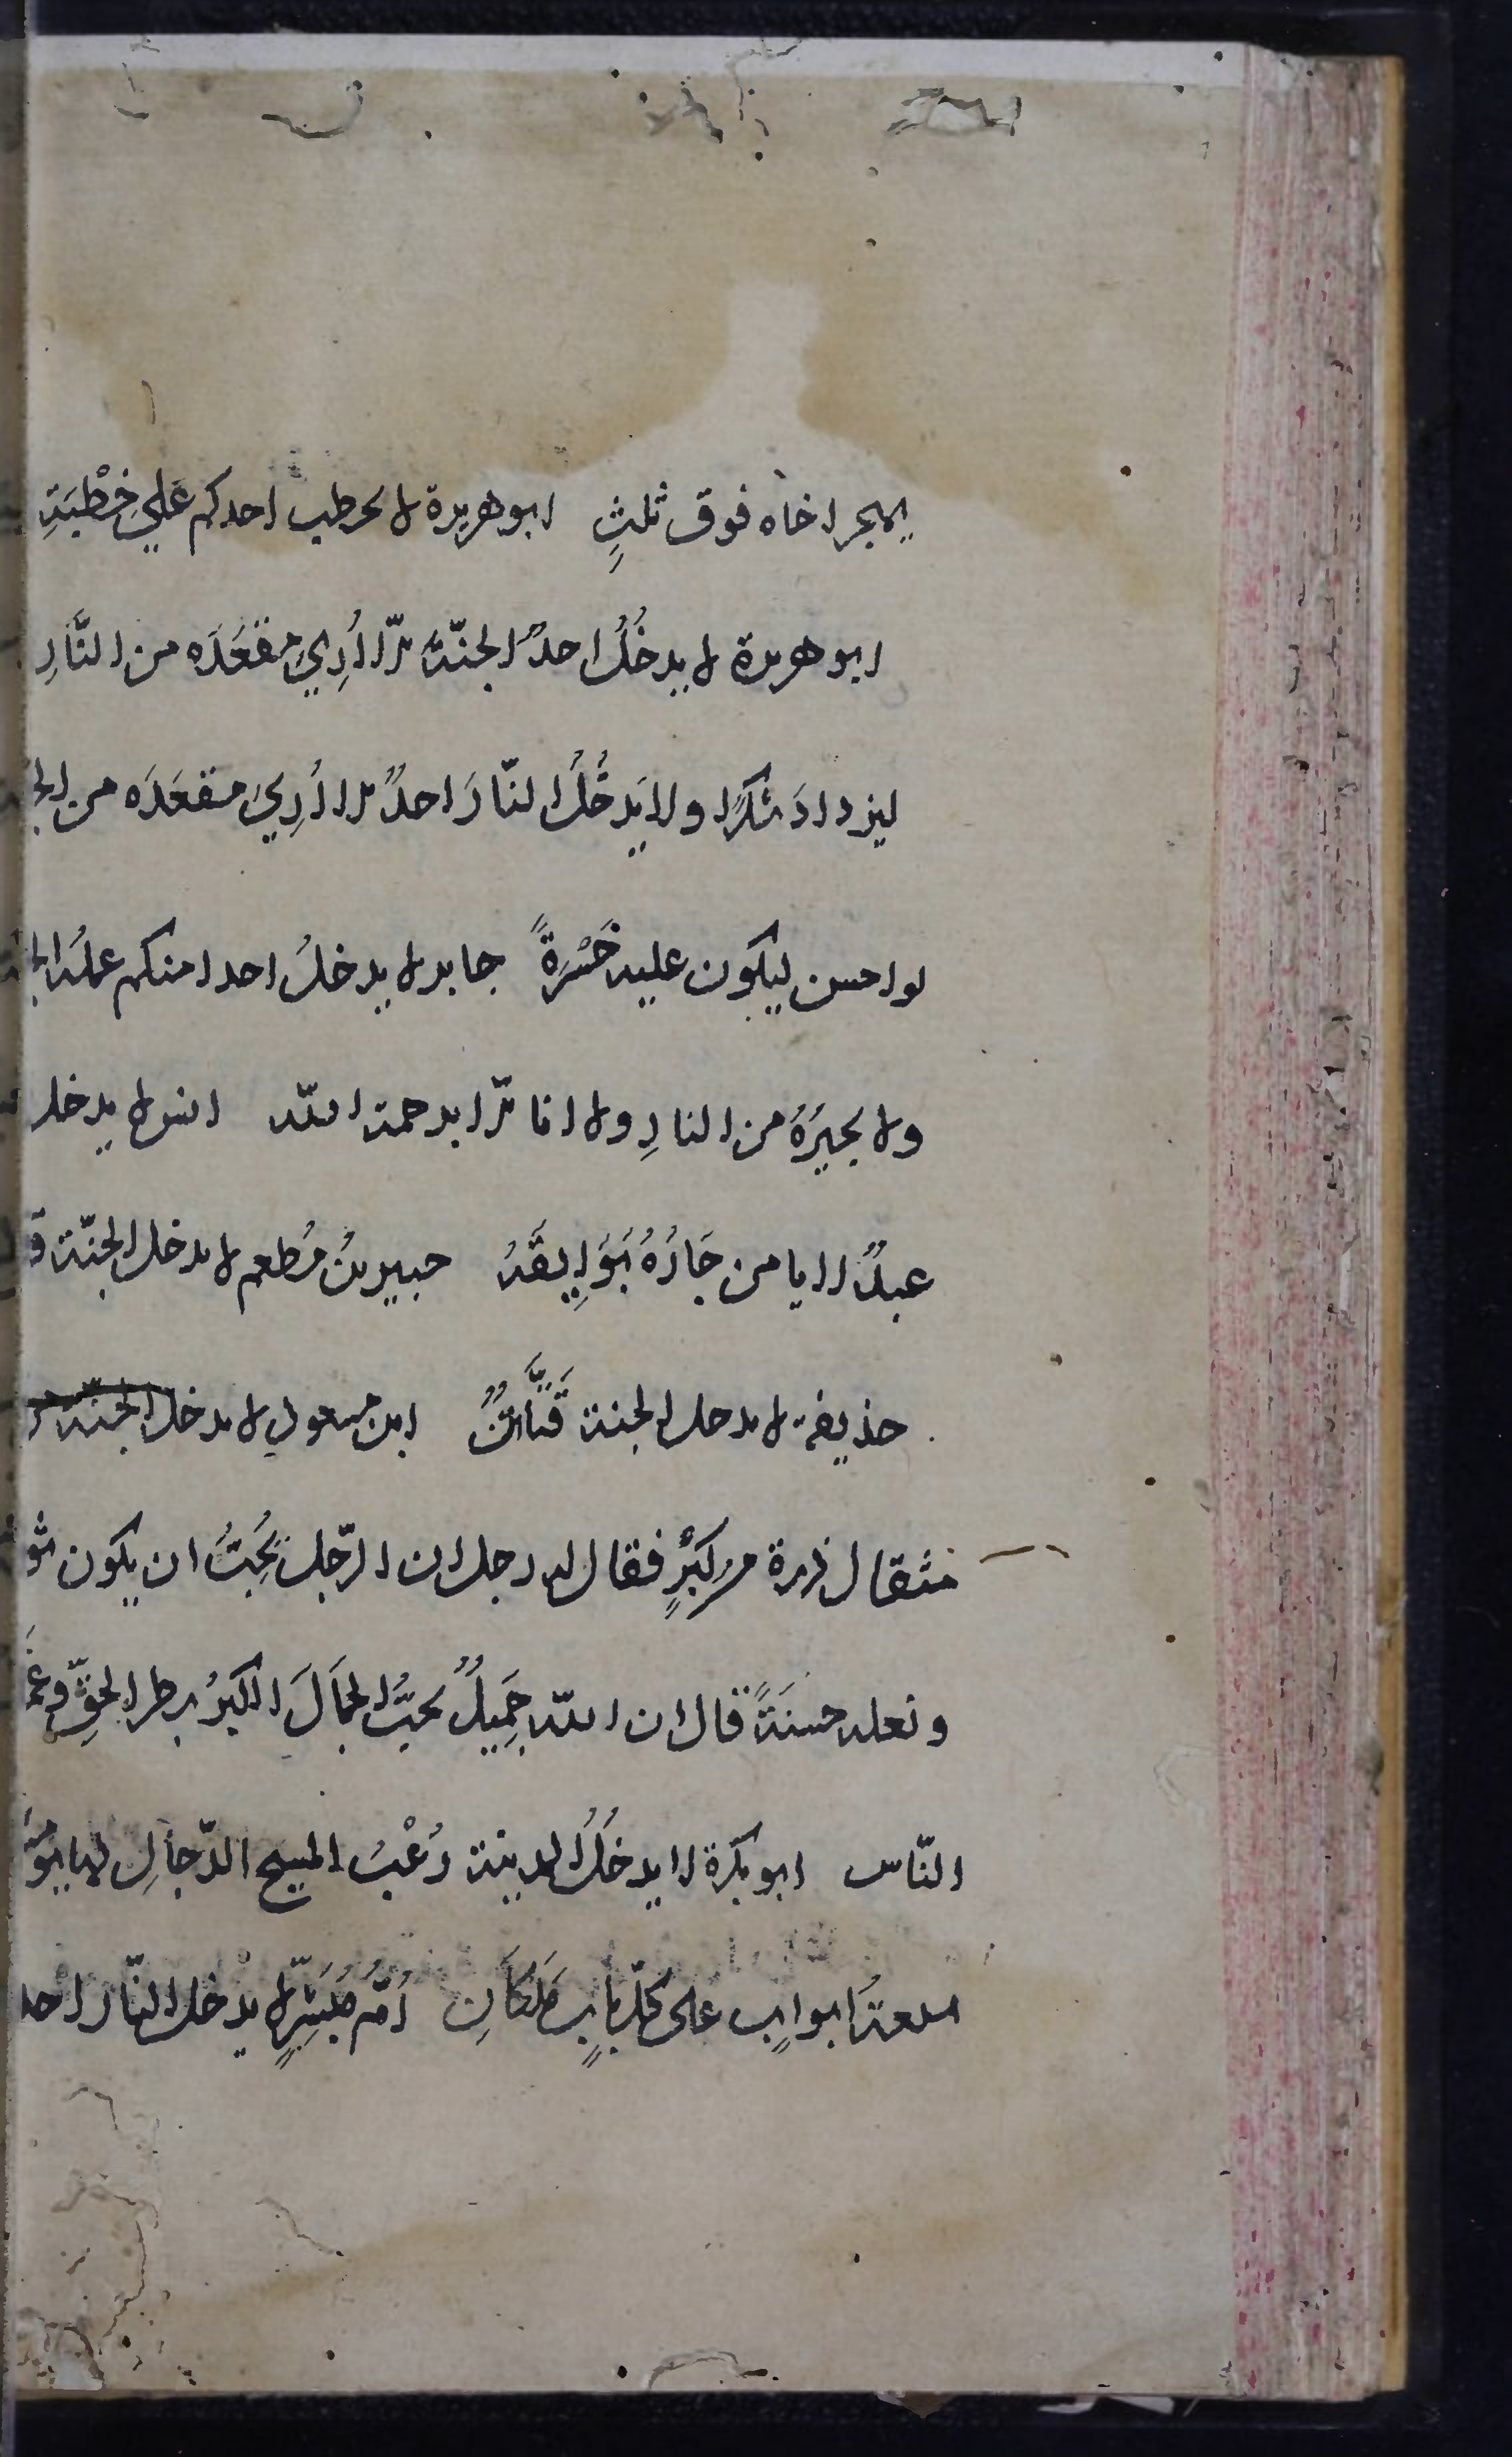 يهجر اخاه فوق ثلثٍ ابو هريرة لا يخطب احدكم علي خِطْبَةِ
ابو هريرة لا يدخُلُ احدٌ الجنّة الّا اُرِيَ مقعَدَه من النَّارِ
ليزدادَ شكرًا ولا يَدخُلُ النّارَ احدٌ الا اُرِيَ مقعَدَه من الجـ
لو احسن ليكون عليه حَسْرةً جابر لا يدخلُ احدا منكم عملُه الجـ
ولا يجيرُهُ من النارِ ولا انا الّا برحمة اللّه انس لا يدخل
عبدٌ لا يامن جَارُهُ بَوَايِقَهُ جبير بنُ مُطعم لا يدخل الجنّة ق
حذيفة لا يدخل الجنة قَتَّاتٌ ابن مسعود لا يدخل الجنّة
مثقال ذرة من كبْرٍ فقال له رجل ان الرّجل يُحِبُّ ان يكون ثو
ونعله حسنَةً قال ان اللّه جَمِيلٌ يحبُّ الجمَالَ الكبرُ بطر الحقِّ وغَمْـ
النّاس ابو بكرة لا يدخُلُ المدينة رُعْبُ المسيح الدّجالِ لها يو
سبعةُ ابوابٍ على كلّ بابٍ مَلَكَانِ اُمّ مُبَشِّرٍ لا يدخل النّار احد